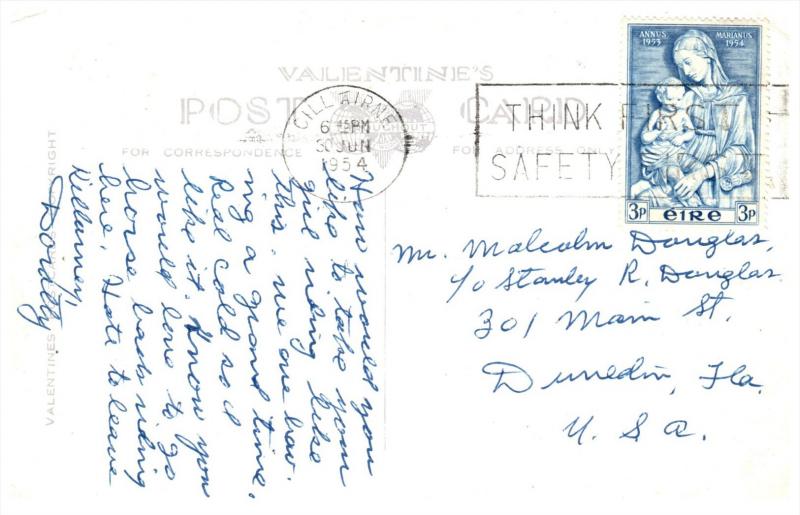 VALENTINE'S
POST CARD
FOR CORRESPONDENCE
FOR ADDRESS ONLY
CILL AIRNE
6 PM
30 JUN
1954
THINK FIRST
SAFETY
ANNUS 1953
MARIANUS 1954
3P éIRe 3P
How would you
like to take your
girl riding like
this. We are hav-
ing a grand time.
Real cold so I
like it. Know you
would love to go
horse back riding
here. Hate to leave
Killarney,
Mr. Malcolm Douglas,
c/o Stanley R. Douglas
301 Main St.
Dunedin, Fla.
U. S. A.